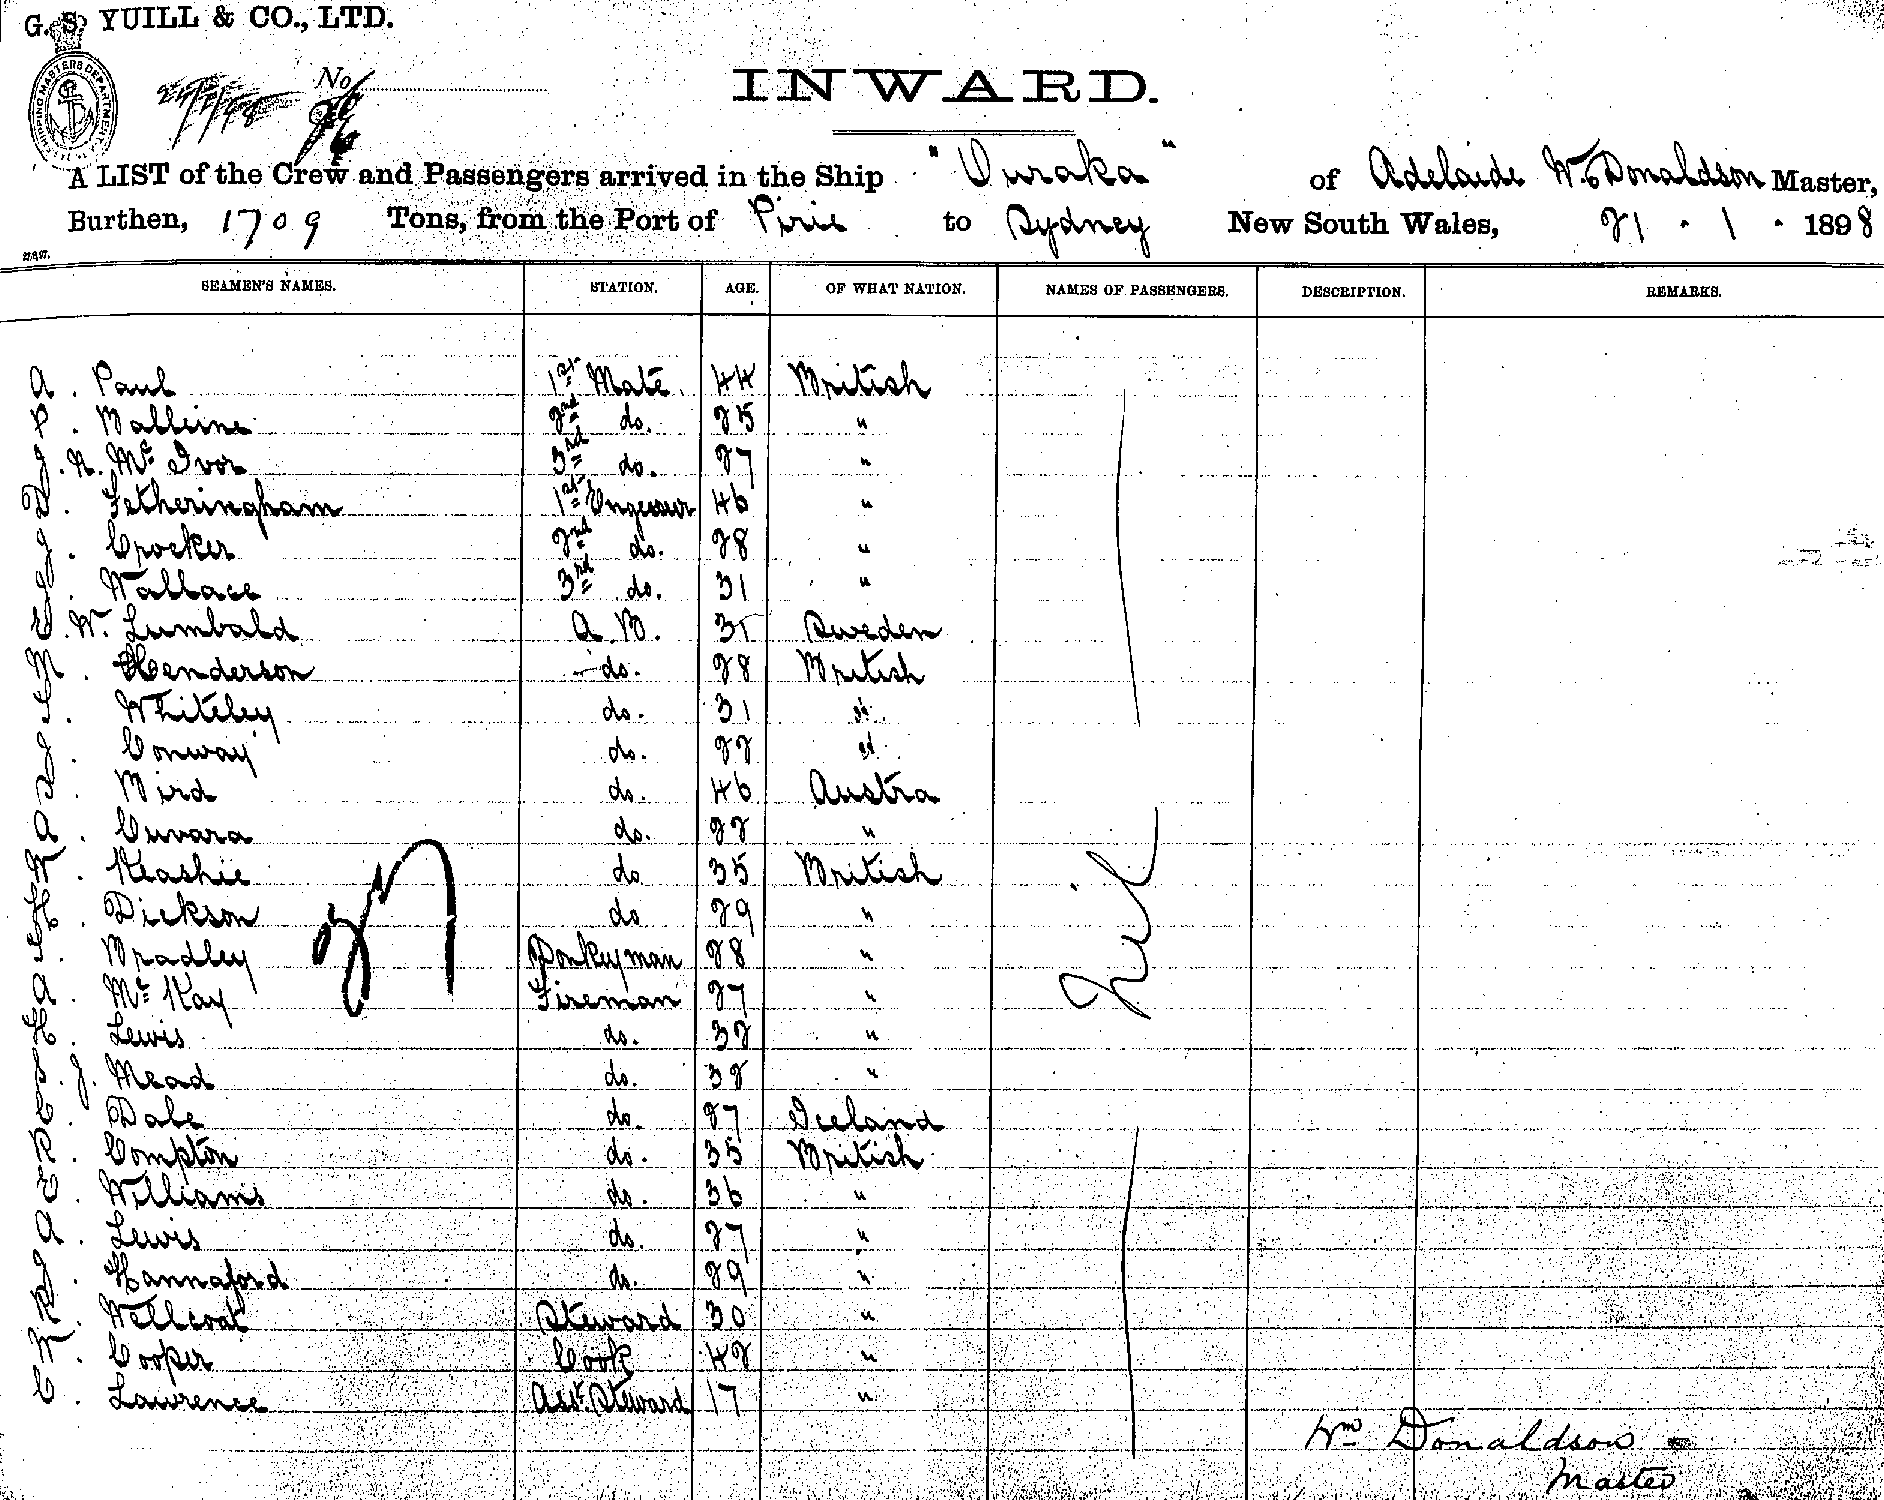 G. S. YUILL & CO., LTD.
SHIPPING MASTERS DEPARTMENT
No
INWARD.
A LIST of the Crew and Passengers arrived in the Ship "Ouraka" of Adelaide Wm Donaldson Master,
Burthen, 1709 Tons, from the Port of Pirie to Sydney New South Wales, 21 . 1 . 1898
SEAMEN'S NAMES. STATION. AGE. OF WHAT NATION. NAMES OF PASSENGERS. DESCRIPTION. REMARKS.
A. Paul 1st Mate. 44 British
P. Balleine 2nd do. 25 "
J. N. Mc Ivor 3rd do. 27 "
D. Fetheringham 1st Engeneer 46 "
J. Crocker 2nd do. 28 "
J. Wallace 3rd do. 31 "
E. W. Lumbald A B. 35 Sweden
M. Henderson do. 28 British
S. Whiteley do. 31 "
J. Conway do. 22 "
P. Bird do. 46 Austra
A. Cuvara do. 22 "
K. Keashie do 35 British
H. Dickson do 29 "
S. Bradley Donkeyman 28 "
A. Mc Kay Fireman 27 "
H. Lewis do. 32 "
S. J. Mead do. 32 "
S. Dale do. 27 Iceland
R. Compton do. 35 British
E. Williams do. 36 "
A. Lewis do. 27 "
J. Hannaford do. 29 "
R. Wellcoat Steward 30 "
K. Cooper Cook 42 "
C. Lawrence Asst. Steward 17 "
27
Nil
Wm Donaldson
Master